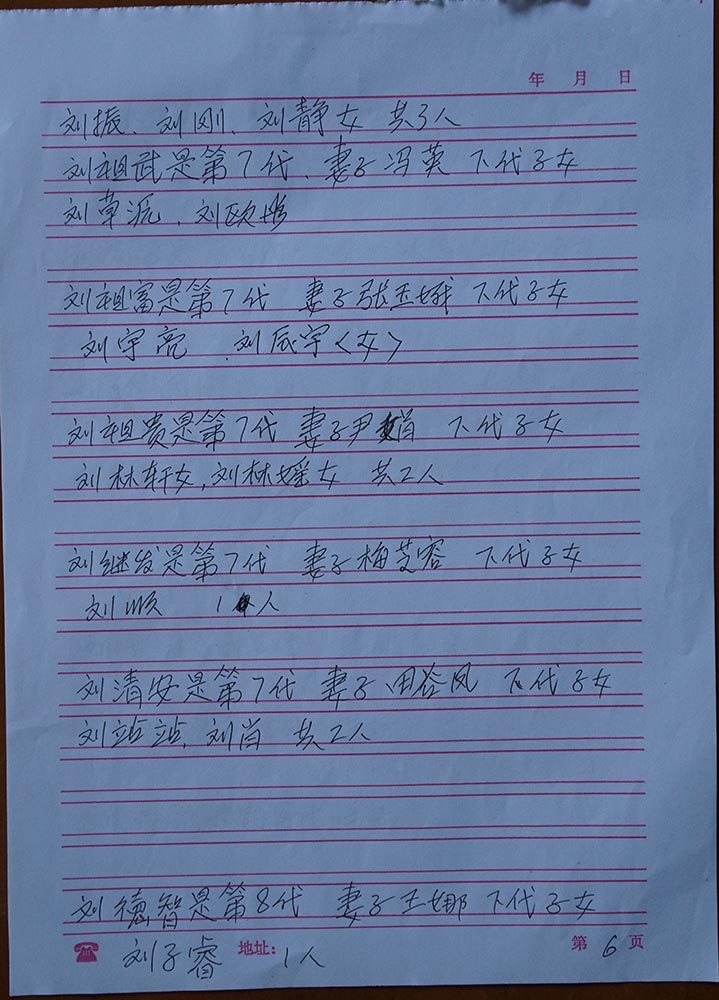 年 月 日
刘振、刘刚、刘静女 共3人
刘祖武是第7代、妻子冯英 下代子女
刘草派、刘欧
刘祖富是第7代 妻子张玉娥 下代子女
刘宇亮、刘辰宇〈女〉
刘祖贵是第7代 妻子尹 下代子女
刘林轩女,刘林瑶女 共2人
刘继发是第7代 妻子梅芝容 下代子女
刘顺 1人
刘清安是第7代 妻子田谷风 下代子女
刘站站、刘肖 共2人
刘德智是第8代 妻子王娜 下代子女
刘子睿 地址: 1人 第6页